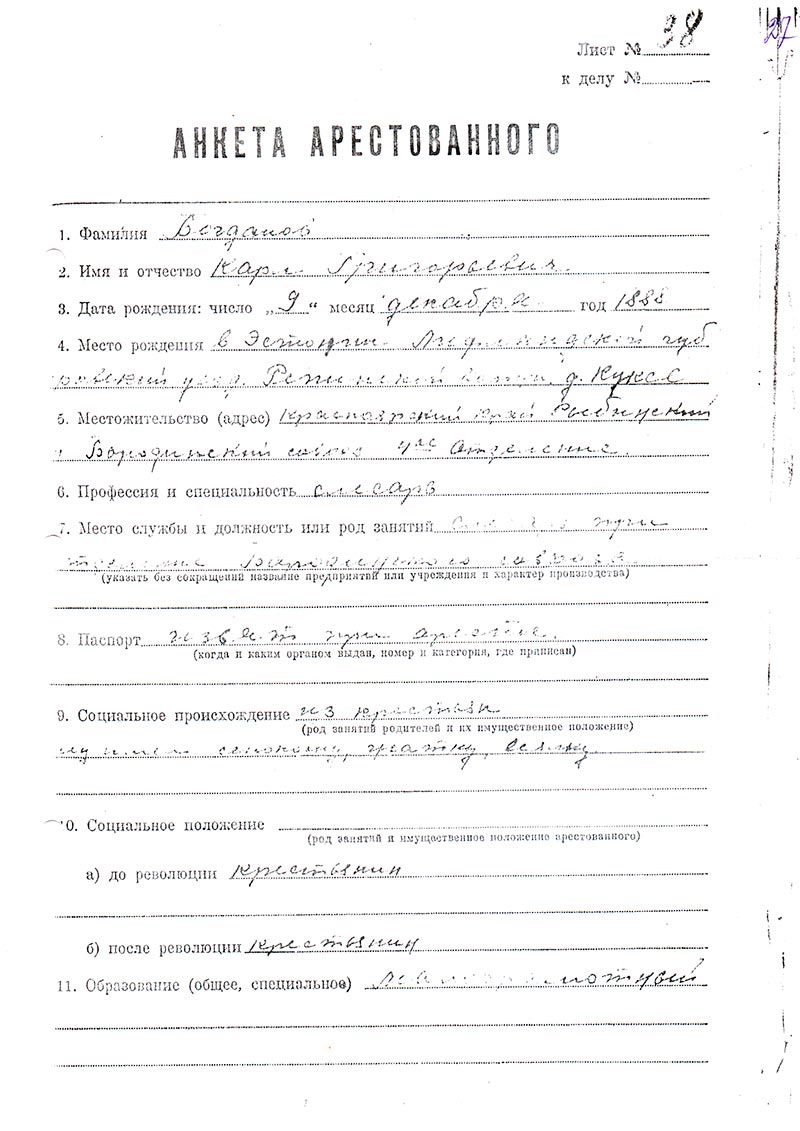 27
Лист № 38
к делу №
АНКЕТА АРЕСТОВАННОГО
1. Фамилия Богданов
2. Имя и отчество Карл Григорьевич.
3. Дата рождения: число „9“ месяц декабря год 1888
4. Место рождения в Эстонии Лифляндской губ
уезд. д. Кукса
5. Местожительство (адрес) Красноярский край Рыбинский
Бородинский совхоз 4ое Отделение.
6. Профессия и специальность слесарь
7. Место службы и должность или род занятий при
совхоза.
(указать без сокращений название предприятий или учреждения и характер производства)
8. Паспорт при аресте.
(когда и каким органом выдан, номер и категория, где прописан)
9. Социальное происхождение из крестьян
(род занятий родителей и их имущественное положение)
сенокоску, жатку, веялку
10. Социальное положение
(род занятий и имущественное положение арестованного)
а) до революции крестьянин
б) после революции крестьянин
11. Образование (общее, специальное) малограмотный